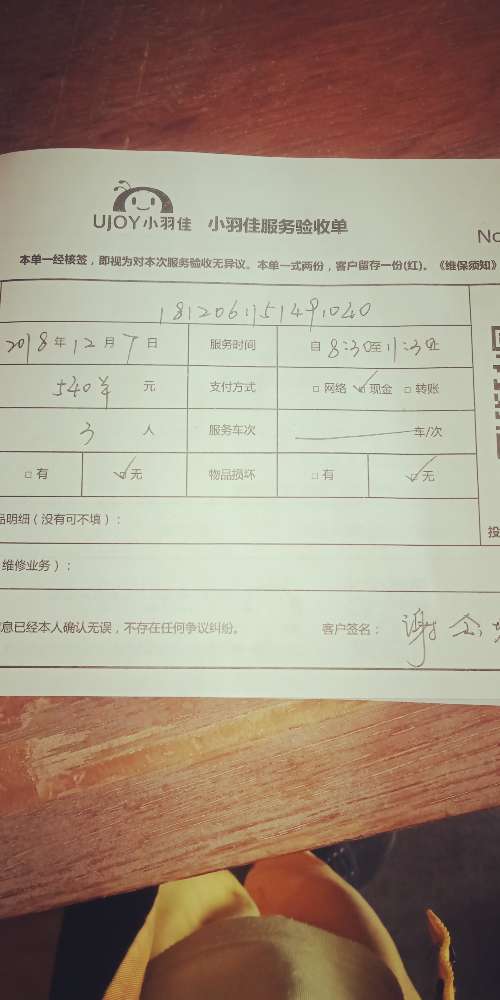 UJOY小羽佳 小羽佳服务验收单
No
本单一经核签，即视为对本次服务验收无异议。本单一式两份，客户留存一份(红)。《维保须知》
181206151491040
2018年12月7日 服务时间 自8:30至11:30止
540¥元 支付方式 □网络 ☑现金 □转账
3人 服务车次 车/次
□有 ☑无 物品损坏 □有 ☑无
品明细（没有可不填）：
投
维修业务）：
息已经本人确认无误，不存在任何争议纠纷。 客户签名：谢金